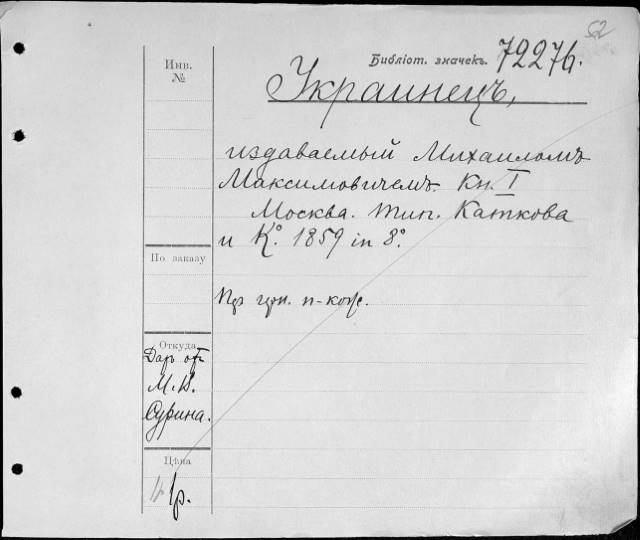 52
Библіот. значекъ. 72276.
Инв.
№
Украинецъ,
издаваемый Михаиломъ
Максимовичемъ. Кн. I
Москва. Тип. Каткова
и Ко. 1859 in 8o.
По заказу
п-кож.
Откуда
Даръ отъ
М. В.
Сурина.
Цѣна
1р.